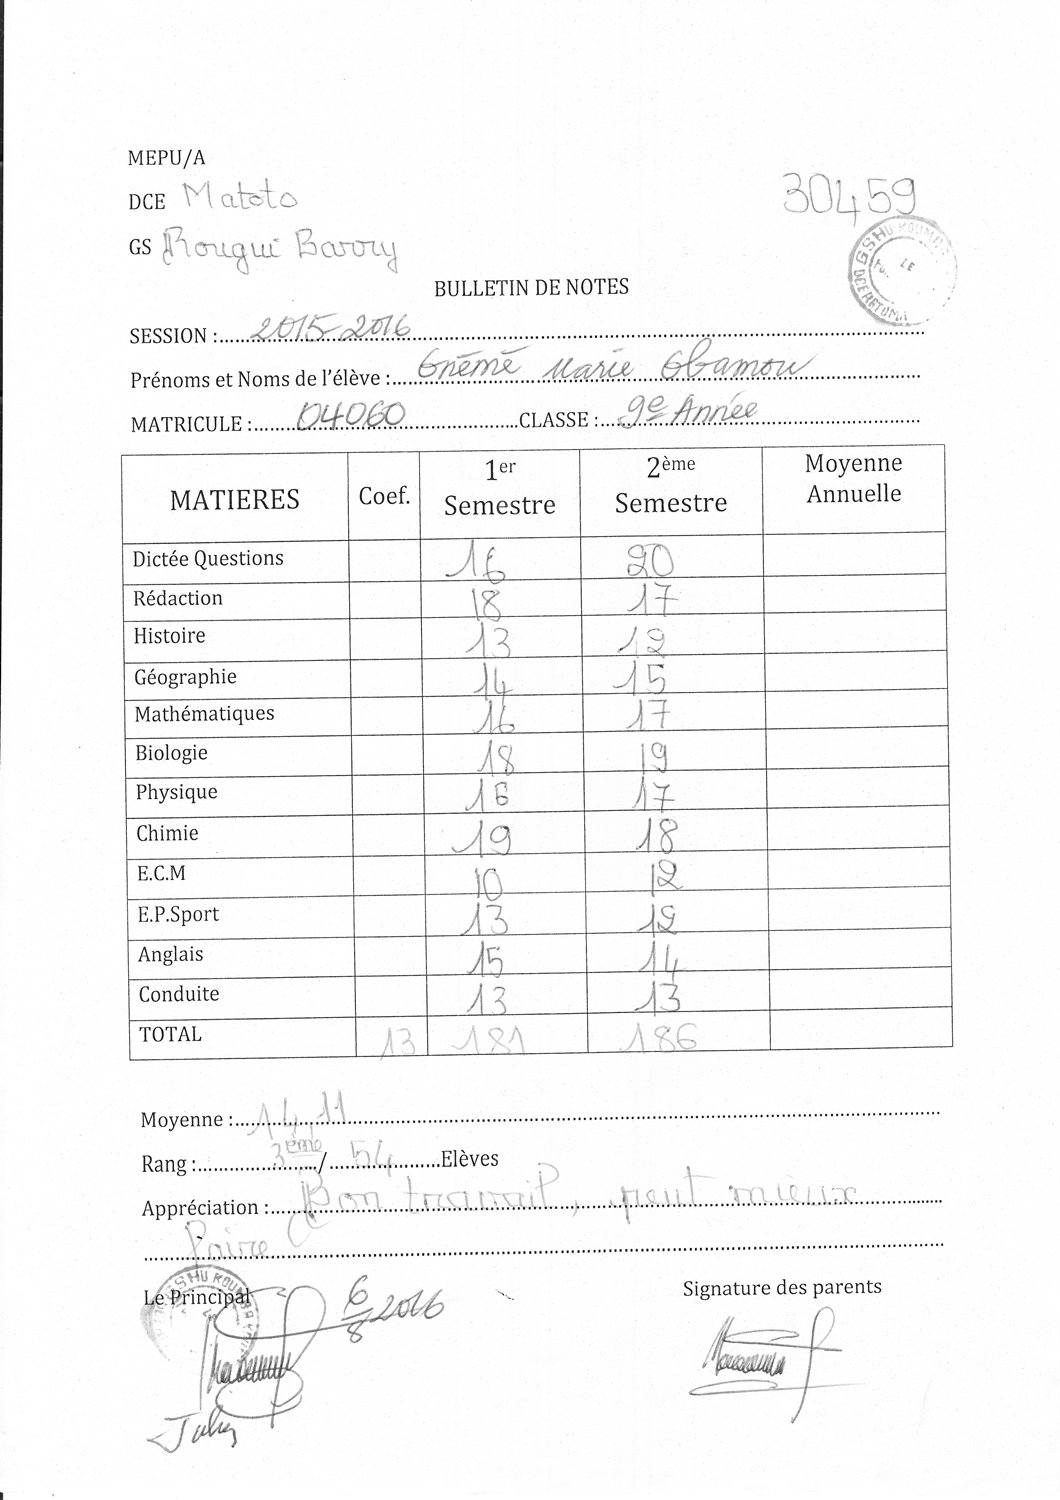 MEPU/A
DCE Matoto
30459
GS Rougui Barry
GSHU KOUMBA
LE
DCE RATOMA
BULLETIN DE NOTES
SESSION : 2015-2016
Prénoms et Noms de l'élève : Gnèmè Marie Gbamou
MATRICULE : 04060 CLASSE : 9e Année
MATIERES Coef. 1er Semestre 2ème Semestre Moyenne Annuelle
Dictée Questions 16 20
Rédaction 18 17
Histoire 13 12
Géographie 14 15
Mathématiques 16 17
Biologie 18 19
Physique 16 17
Chimie 19 18
E.C.M 10 12
E.P.Sport 13 12
Anglais 15 14
Conduite 13 13
TOTAL 13 181 186
Moyenne : 14,11
Rang : 3ème / 54 Elèves
Appréciation : Bon travail, peut mieux
Faire
Le Principal 6/8 2016 Signature des parents
GSHU KOUMBA